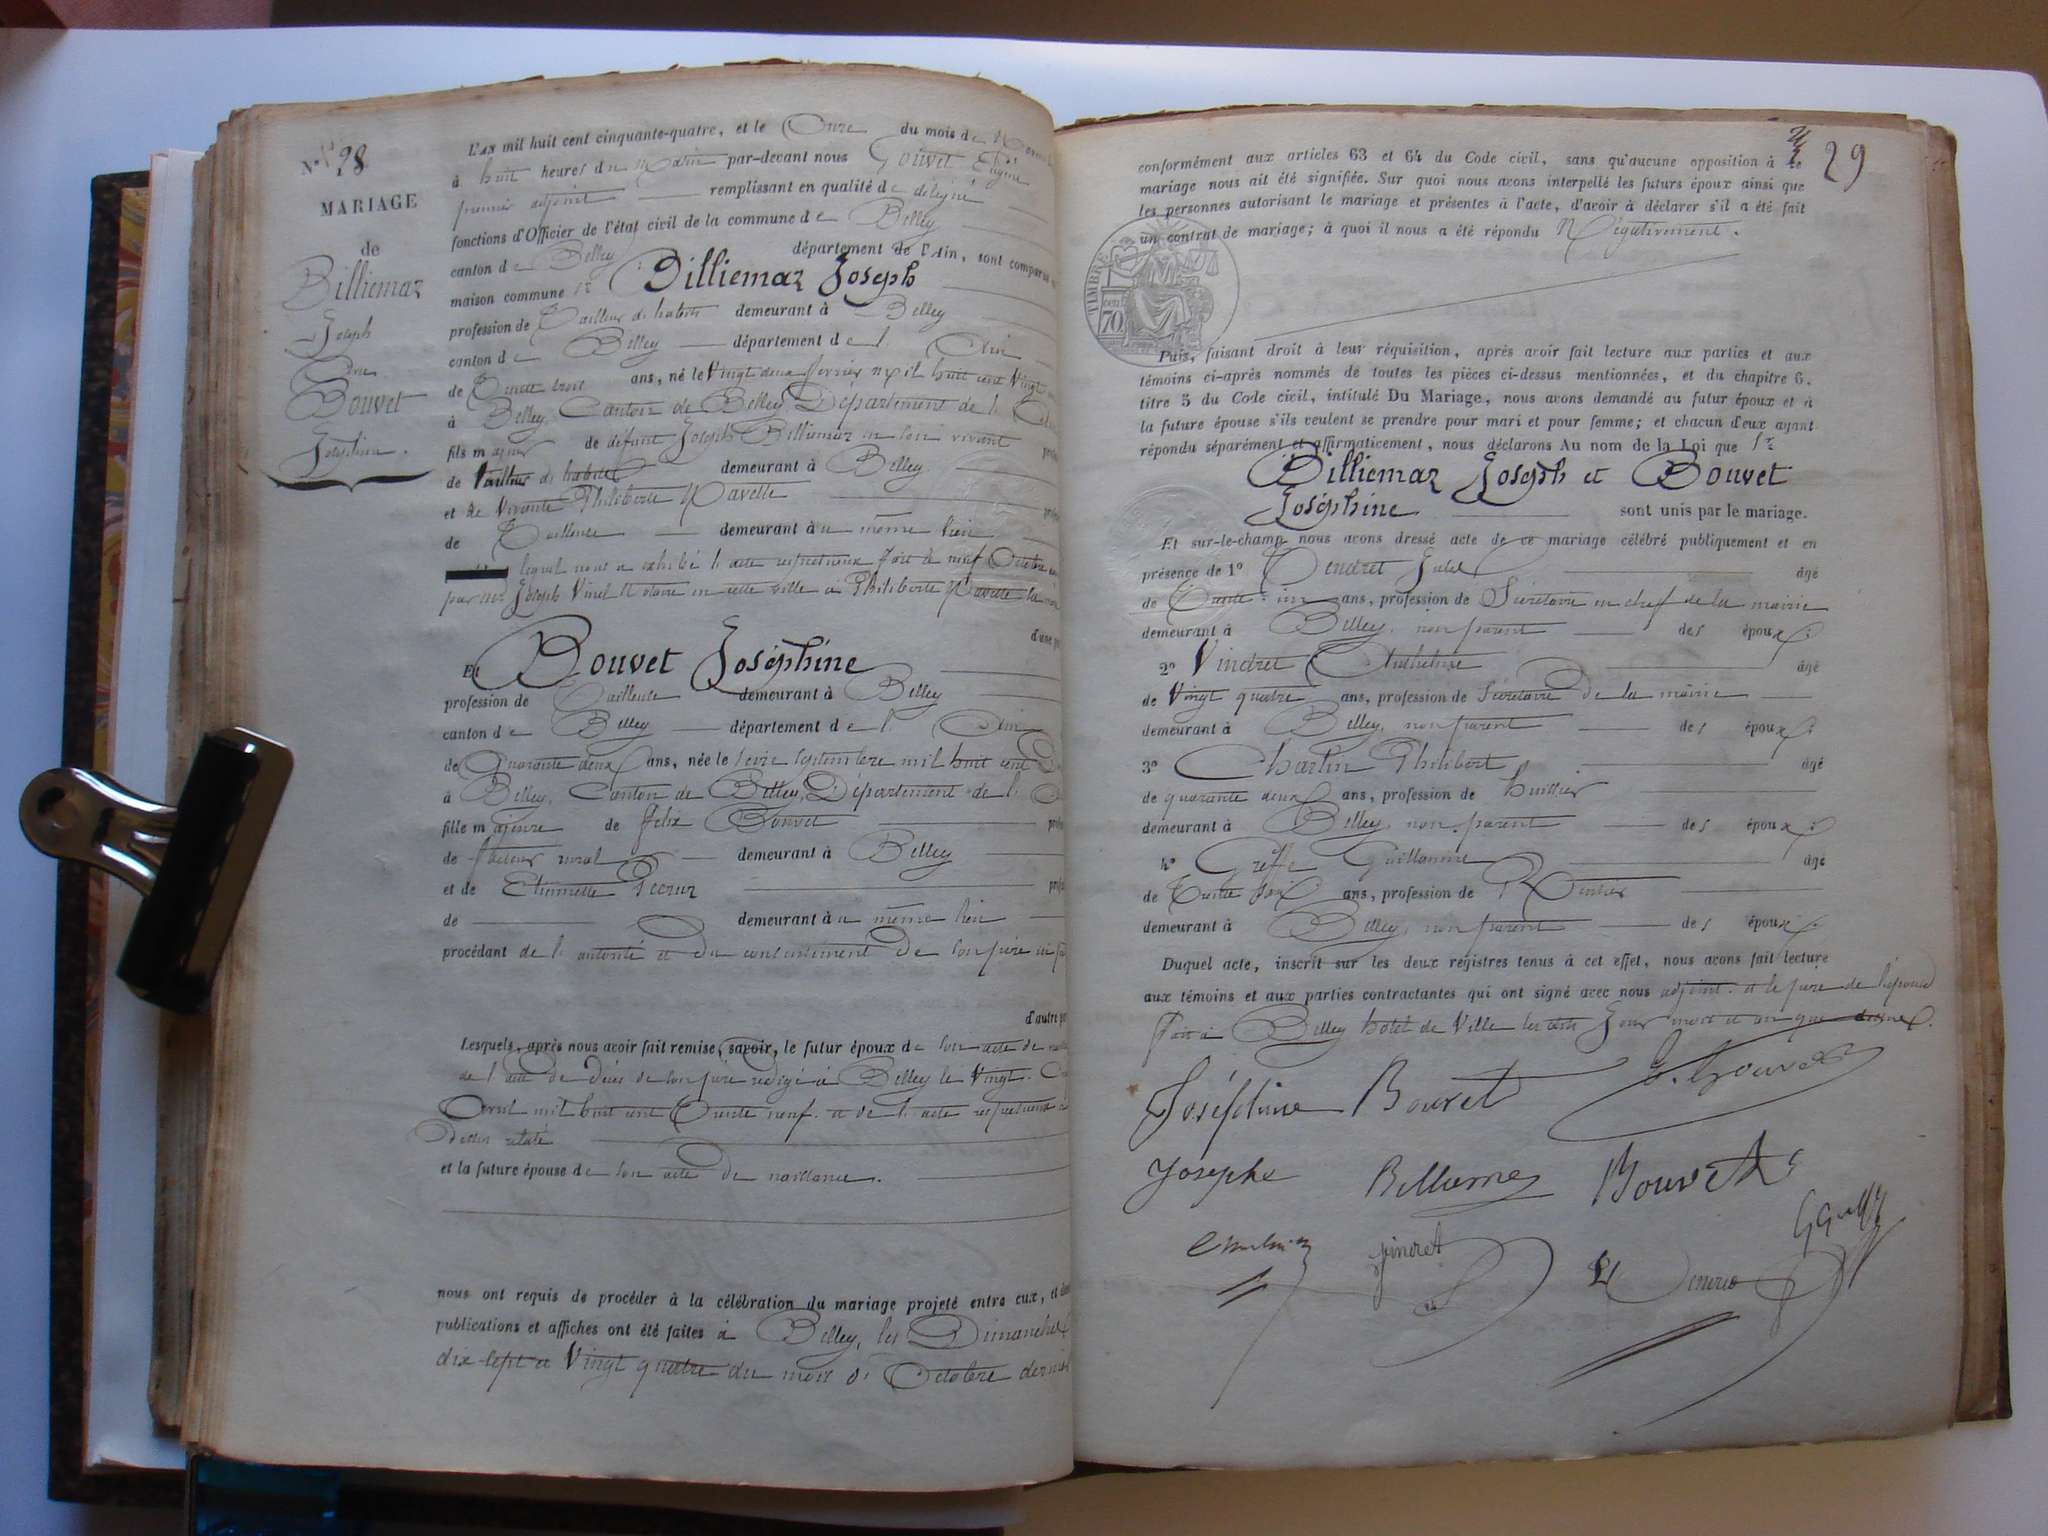 N° 28
MARIAGE
de
Billiemaz
Joseph
Avec
Bouvet
Joséphine.
L'AN mil huit cent cinquante-quatre, et le Onze du mois de
à huit heures du Matin par-devant nous Gouvet Eugène
premier adjoint remplissant en qualité de délégué
fonctions d'Officier de l'état civil de la commune de Belley
canton de Belley département de l'Ain, sont comparus
maison commune 1° Billiemaz Joseph
profession de Tailleur d'habits demeurant à Belley
canton de Belley département de l'Ain
de Trente trois ans, né le Vingt deux février mil huit cent Vingt
à Belley, Canton de Belley, Département de l'
fils majeur de défunt Joseph Billiemaz en son vivant
de Tailleur d'habits demeurant à Belley
et de Vivante Philiberte Navette
de Tailleuse demeurant au même lieu
lequel nous a exhibé l'acte respectueux fait le neuf Octobre
par Me Joseph Vinel Notaire en cette ville à Philiberte Navette
d'une
Et Bouvet Joséphine
profession de Tailleuse demeurant à Belley
canton de Belley département de l'Ain
de Quarante deux ans, née le seize septembre mil huit cent
à Belley, Canton de Belley, Département de l'
fille majeure de Felix Bouvet
de facteur rural demeurant à Belley
et de Etiennette
de demeurant au même lieu
procédant de l'autorité et du consentement de son père
d'autre
Lesquels, après nous avoir fait remise, savoir, le futur époux de son acte de
de l'acte de décès de son père rédigé à Belley le Vingt
Avril mil huit cent Trente neuf. et de l'acte respectueux
dessus relaté
et la future épouse de son acte de naissance.
nous ont requis de procéder à la célébration du mariage projeté entre eux, et
publications et affiches ont été faites à Belley, les Dimanches
dix sept et Vingt quatre du mois d'Octobre dernier
29
conformément aux articles 63 et 64 du Code civil, sans qu'aucune opposition à ce
mariage nous ait été signifiée. Sur quoi nous avons interpellé les futurs époux ainsi que
les personnes autorisant le mariage et présentes à l'acte, d'avoir à déclarer s'il a été fait
un contrat de mariage; à quoi il nous a été répondu Négativement.
TIMBRE
cent.
70.
Puis, faisant droit à leur réquisition, après avoir fait lecture aux parties et aux
témoins ci-après nommés de toutes les pièces ci-dessus mentionnées, et du chapitre 6,
titre 5 du Code civil, intitulé Du Mariage, nous avons demandé au futur époux et à
la future épouse s'ils veulent se prendre pour mari et pour femme; et chacun d'eux ayant
répondu séparément et affirmativement, nous déclarons Au nom de la Loi que
Billiemaz Joseph et Bouvet
Joséphine sont unis par le mariage.
Et sur-le-champ nous avons dressé acte de ce mariage célébré publiquement et en
présence de 1° Tendret Jules âgé
de Trente un ans, profession de Sécrétaire en chef de la mairie
demeurant à Belley, non parent des époux;
2° Vindret Anthelme âgé
de Vingt quatre ans, profession de Sécrétaire de la mairie
demeurant à Belley, non parent des époux;
3° Charlin Philibert âgé
de quarante deux ans, profession de huissier
demeurant à Belley, non parent des époux;
4° Greffe Guillaume âgé
de Trente six ans, profession de Rentier
demeurant à Belley, non parent des époux.
Duquel acte, inscrit sur les deux registres tenus à cet effet, nous avons fait lecture
aux témoins et aux parties contractantes qui ont signé avec nous adjoint et le père de l'épouse
Fait à Belley hôtel de Ville les dits Jour mois et an que dessus.
Joséphine Bouvet E. Gouvet
Josephe Billiemaz Bouvet
Charlin Vindret